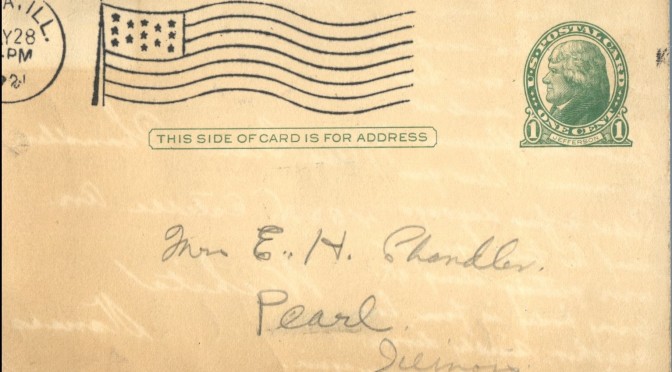 A, ILL.
Y28
PM
U.S. POSTAL CARD
1 ONE CENT 1
JEFFERSON
THIS SIDE OF CARD IS FOR ADDRESS
Mrs E. H. Chandler.
Pearl.
Illinois